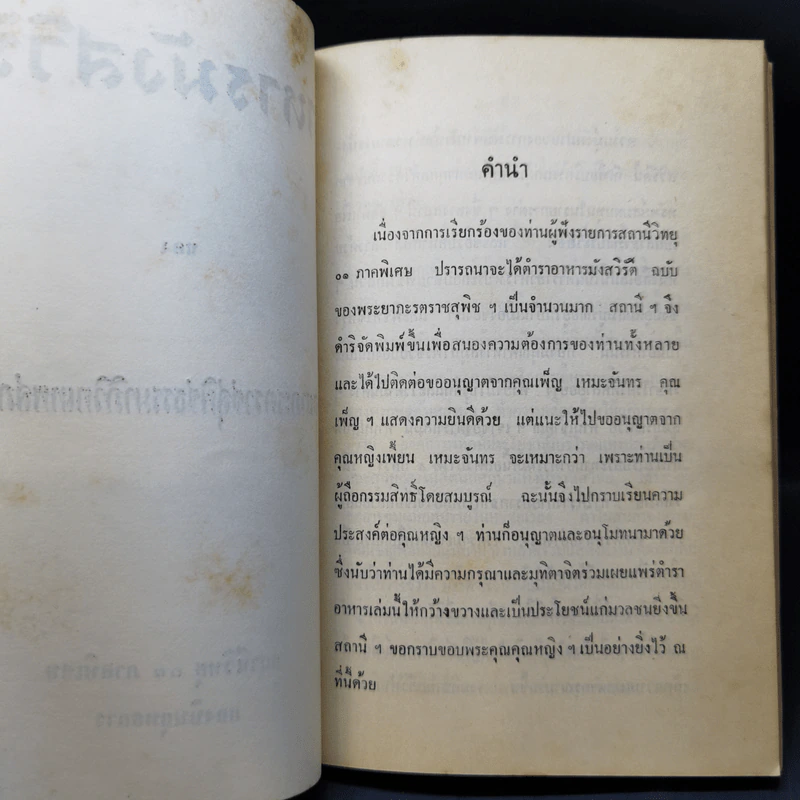 คำนำ
เนื่องจากการเรียกร้องของท่านผู้ฟังรายการสถานีวิทยุ
๐๑ ภาคพิเศษ ปรารถนาจะได้ตำราอาหารมังสวิรัติ ฉบับ
ของพระยาภะรตราชสุพิช ฯ เป็นจำนวนมาก สถานี ฯ จึง
ดำริจัดพิมพ์ขึ้นเพื่อสนองความต้องการของท่านทั้งหลาย
และได้ไปติดต่อขออนุญาตจากคุณเพ็ญ เหมะจันทร คุณ
เพ็ญ ฯ แสดงความยินดีด้วย แต่แนะให้ไปขออนุญาตจาก
คุณหญิงเพี้ยน เหมะจันทร จะเหมาะกว่า เพราะท่านเป็น
ผู้ถือกรรมสิทธิ์โดยสมบูรณ์ ฉะนั้นจึงไปกราบเรียนความ
ประสงค์ต่อคุณหญิง ฯ ท่านก็อนุญาตและอนุโมทนามาด้วย
ซึ่งนับว่าท่านได้มีความกรุณาและมุทิตาจิตร่วมเผยแพร่ตำรา
อาหารเล่มนี้ให้กว้างขวางและเป็นประโยชน์แก่มวลชนยิ่งขึ้น
สถานี ฯ ขอกราบขอบพระคุณคุณหญิง ฯ เป็นอย่างยิ่งไว้ ณ
ที่นี้ด้วย